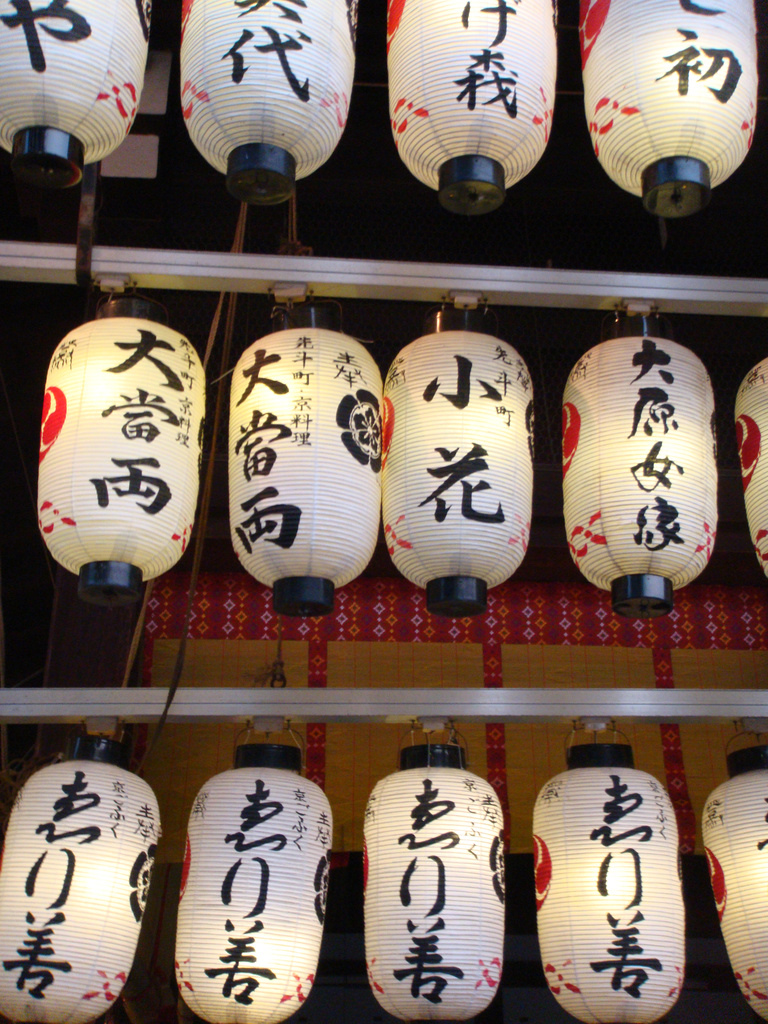 や
代
げ 森
初
先斗町 京料理
大當両
奉
先斗町 京料理
大當両
先斗町
小花
大原女家
奉
京ごふく
ゑり善
奉
京ごふく
ゑり善
奉
京ごふく
ゑり善
京ごふく
ゑり善